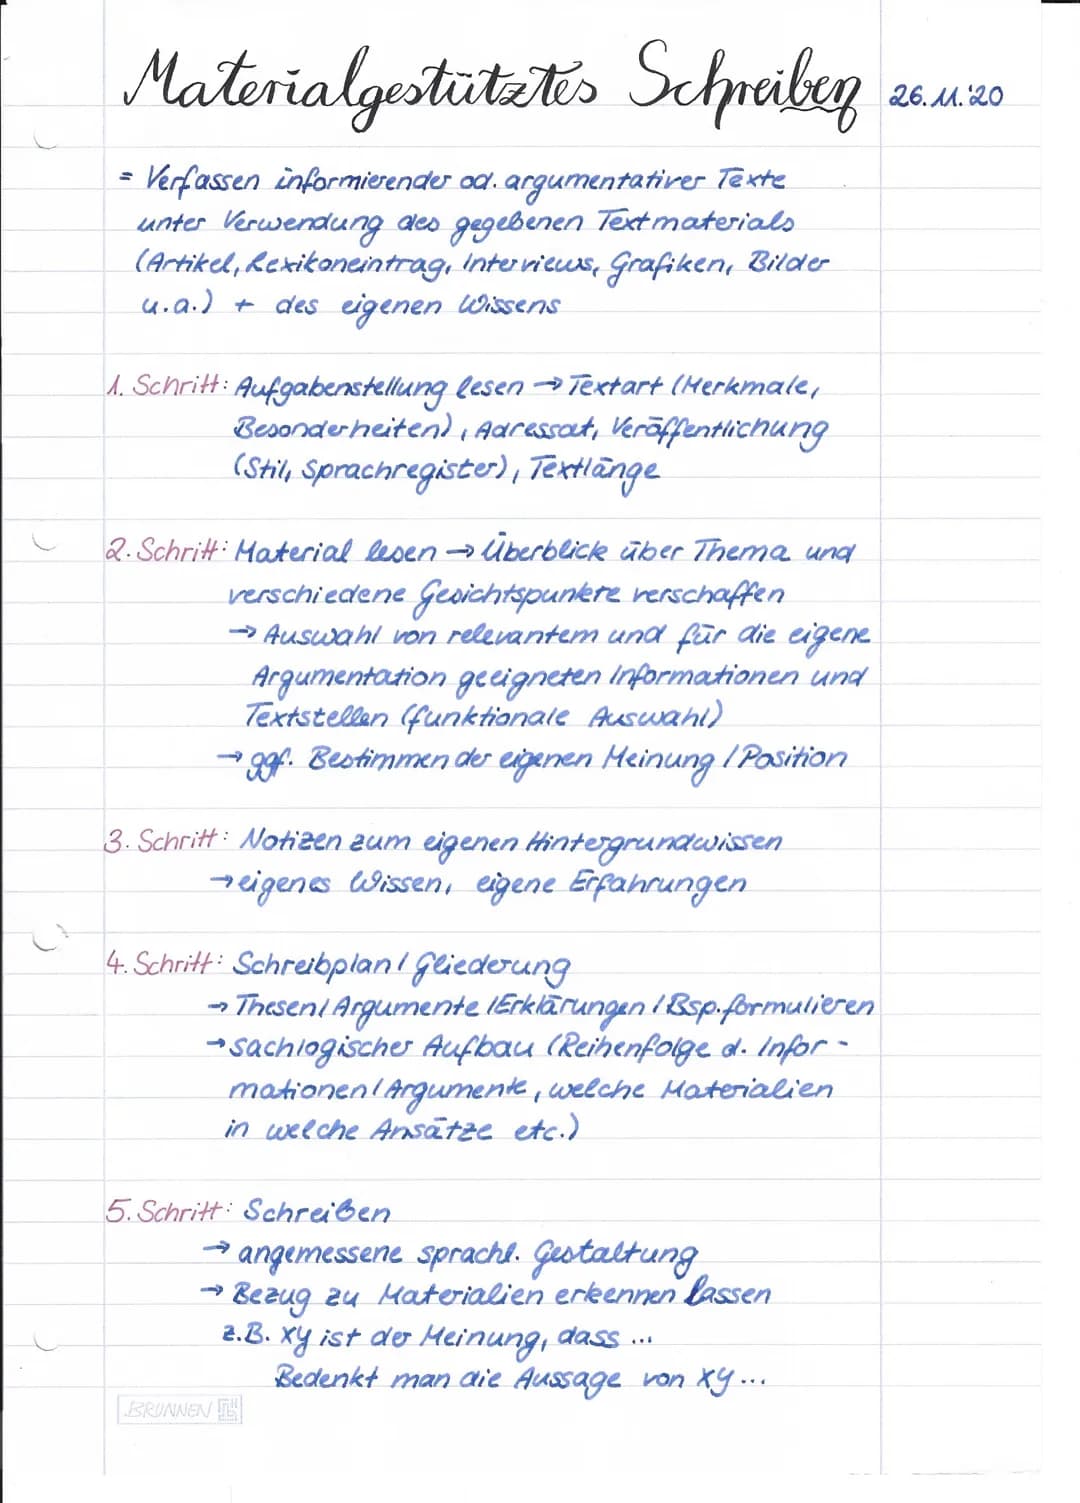 Materialgestütztes Schreiben 26.11.'20
= Verfassen informierender od. argumentativer Texte
unter Verwendung des gegebenen Textmaterials
(Artikel, Lexikoneintrag, Interviews, Grafiken, Bilder
u.a.) + des eigenen Wissens
1. Schritt: Aufgabenstellung lesen → Textart (Merkmale,
Besonderheiten), Adressat, Veröffentlichung
(Stil, Sprachregister), Textlänge
2. Schritt: Material lesen → Überblick über Thema und
verschiedene Gesichtspunkte verschaffen
→ Auswahl von relevantem und für die eigene
Argumentation geeigneten Informationen und
Textstellen (funktionale Auswahl)
→ ggf. Bestimmen der eigenen Meinung / Position
3. Schritt: Notizen zum eigenen Hintergrundwissen
→ eigenes Wissen, eigene Erfahrungen
4. Schritt: Schreibplan / Gliederung
→ Thesen / Argumente / Erklärungen / Bsp. formulieren
→ sachlogischer Aufbau (Reihenfolge d. Infor-
mationen / Argumente, welche Materialien
in welche Ansätze etc.)
5. Schritt: Schreiben
→ angemessene sprachl. Gestaltung
→ Bezug zu Materialien erkennen lassen
z.B. xy ist der Meinung, dass ...
Bedenkt man die Aussage von xy ...
BRUNNEN